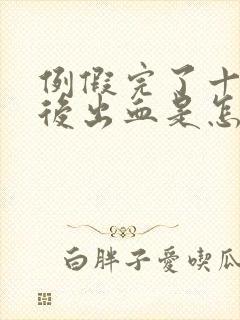 例假完了十
後出血是怎
白胖子愛喫瓜